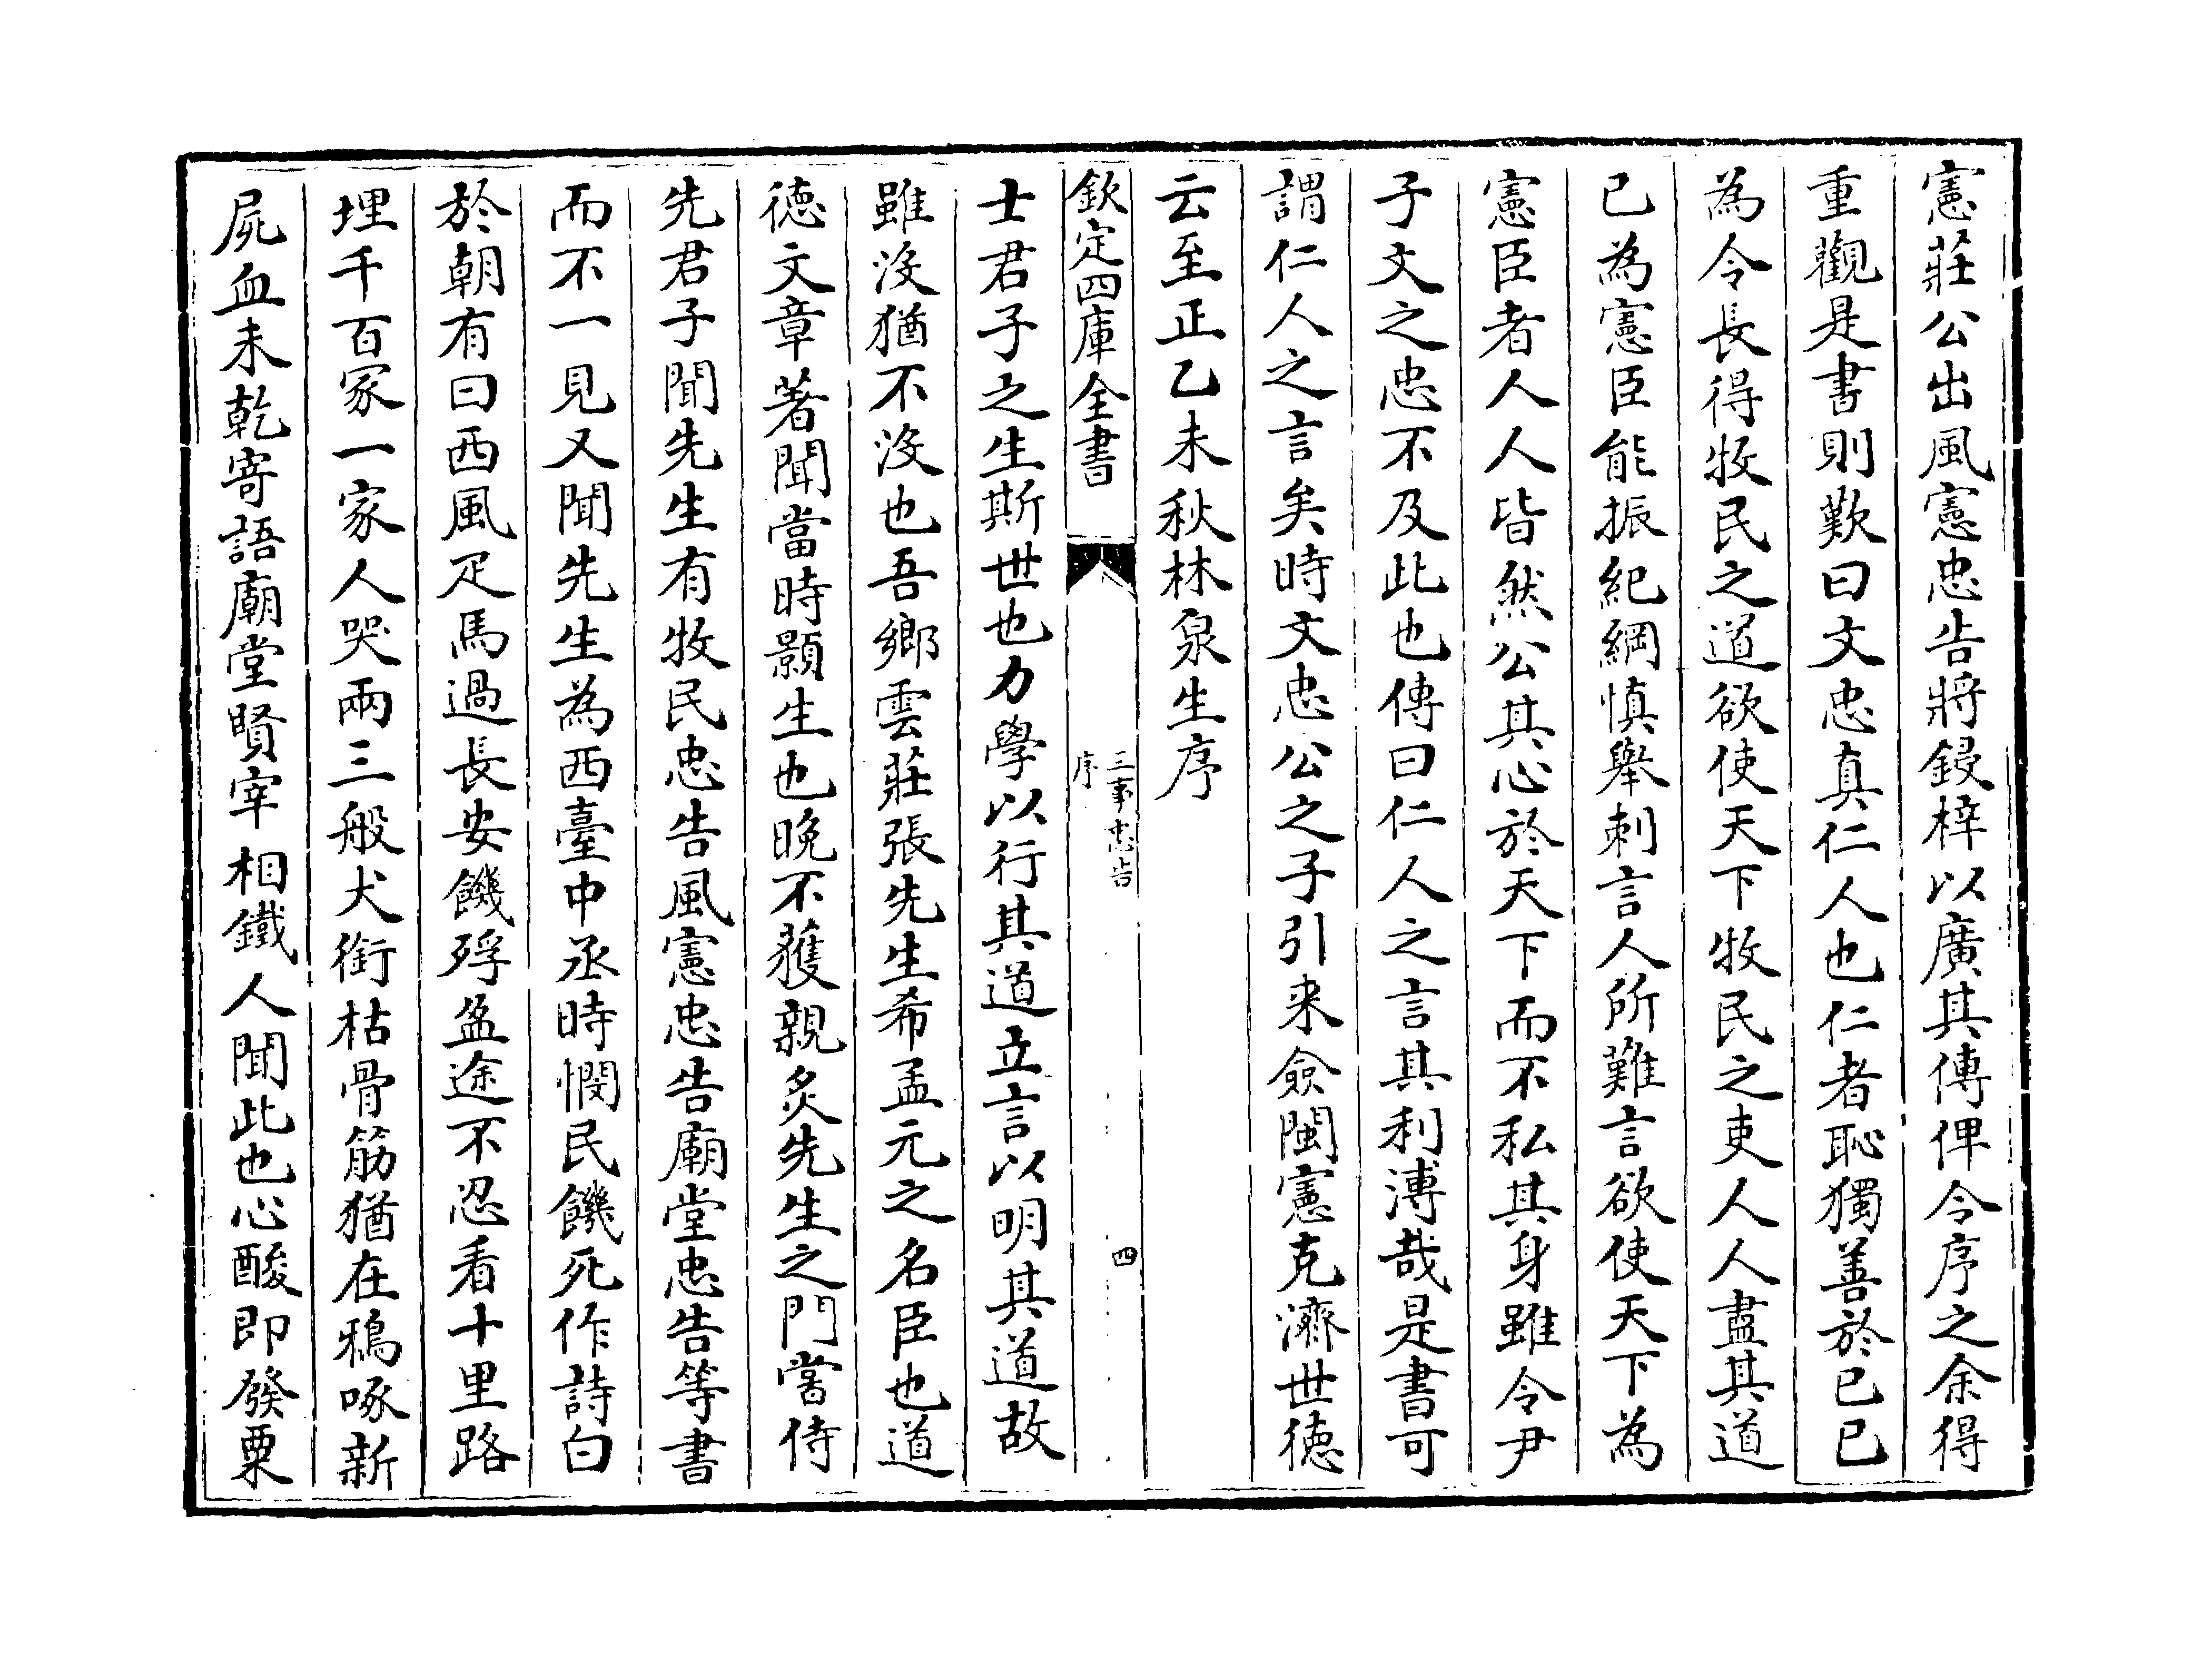 憲莊公出風憲忠告將鋟梓以廣其傳俾令序之余得
重觀是書則歎曰文忠真仁人也仁者恥獨善於已已
為令長得牧民之道欲使天下牧民之吏人人盡其道
已為憲臣能振紀綱慎舉刺言人所難言欲使天下為
憲臣者人人皆然公其心於天下而不私其身雖令尹
子文之忠不及此也傳曰仁人之言其利溥哉是書可
謂仁人之言矣時文忠公之子引来僉閩憲克濟世徳
云至正乙未秋林泉生序
欽定四庫全書
三事忠告
序
四
士君子之生斯世也力學以行其道立言以明其道故
雖沒猶不沒也吾鄉雲莊張先生希孟元之名臣也道
徳文章著聞當時顥生也晚不獲親炙先生之門嘗侍
先君子聞先生有牧民忠告風憲忠告廟堂忠告等書
而不一見又聞先生為西臺中丞時憫民饑死作詩白
於朝有曰西風疋馬過長安饑殍盈途不忍看十里路
埋千百冢一家人哭兩三般犬銜枯骨筋猶在鴉啄新
屍血未乾寄語廟堂賢宰相鐵人聞此也心酸即發粟